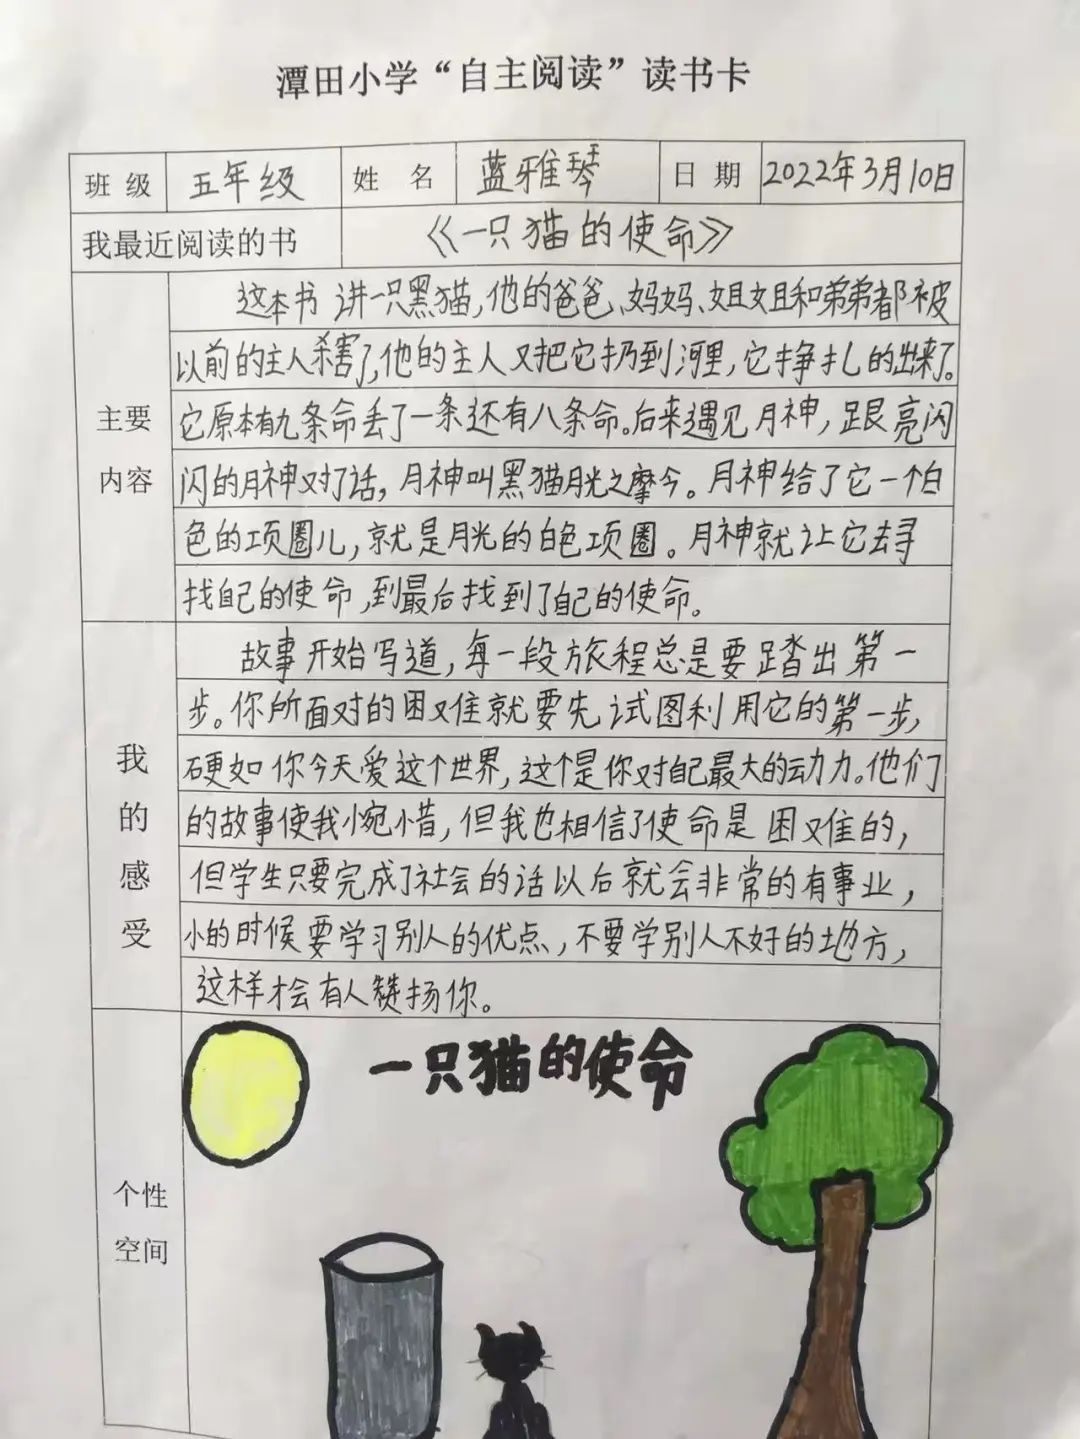 潭田小学“自主阅读”读书卡
班级 五年级 姓名 蓝雅琴 日期 2022年3月10日
我最近阅读的书 《一只猫的使命》
主要内容
这本书讲一只黑猫,他的爸爸、妈妈、姐姐和弟弟都被
以前的主人杀害了,他的主人又把它扔到河里,它挣扎的出来了。
它原本有九条命丢了一条还有八条命。后来遇见月神,跟亮闪
闪的月神对了话,月神叫黑猫月光之摩今。月神给了它一个白
色的项圈儿,就是月光的白色项圈。月神就让它去寻
找自己的使命,到最后找到了自己的使命。
我的感受
故事开始写道,每一段旅程总是要踏出第一
步。你所面对的困难就要先试图利用它的第一步,
硬如你今天爱这个世界,这个是你对自己最大的动力。他们
的故事使我惋惜,但我也相信了使命是困难的,
但学生只要完成了社会的话以后就会非常的有事业,
小的时候要学习别人的优点,不要学别人不好的地方,
这样才会有人赞扬你。
个性空间
一只猫的使命